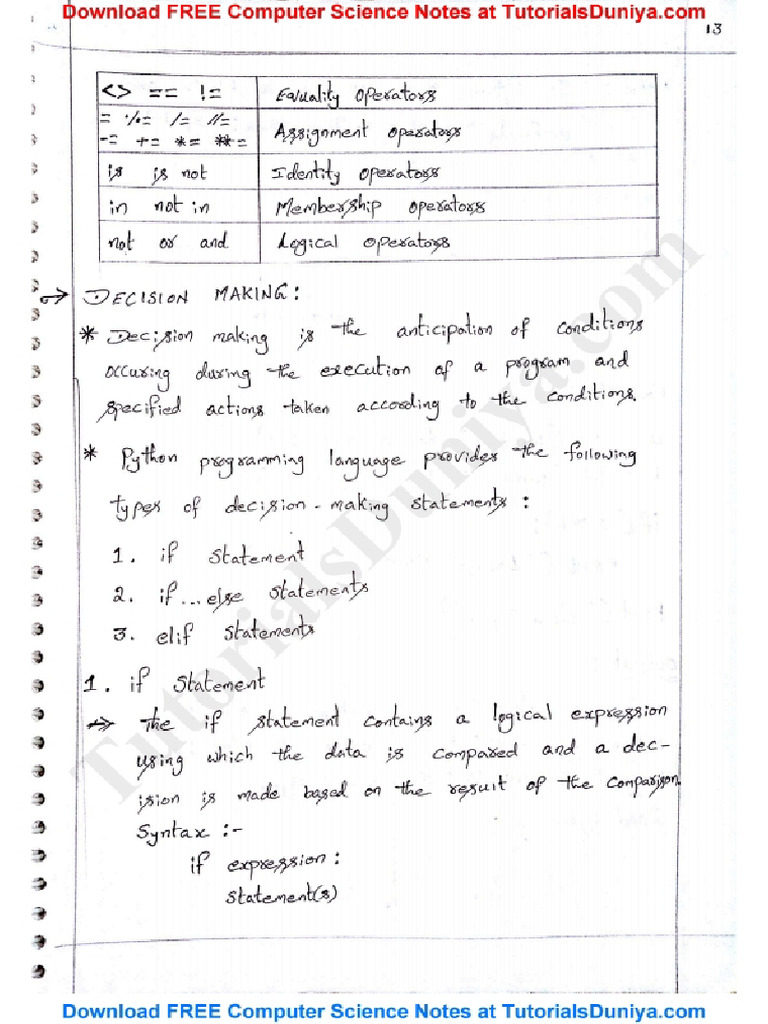 Download FREE Computer Science Notes at TutorialsDuniya.com
13
<> == != Equality operators
= %= /= //=
-= += *= **= Assignment operators
is is not Identity operators
in not in Membership operators
not or and Logical operators
DECISION MAKING:
* Decision making is the anticipation of conditions
occuring during the execution of a program and
specified actions taken according to the conditions.
* Python programming language provides the following
types of decision-making statements:
1. if statement
2. if...else statements
3. elif statements
1. if statement
⇒ The if statement contains a logical expression
using which the data is compared and a dec-
ision is made based on the result of the comparison.
Syntax :-
if expression:
statement(s)
TutorialsDuniya.com
Download FREE Computer Science Notes at TutorialsDuniya.com